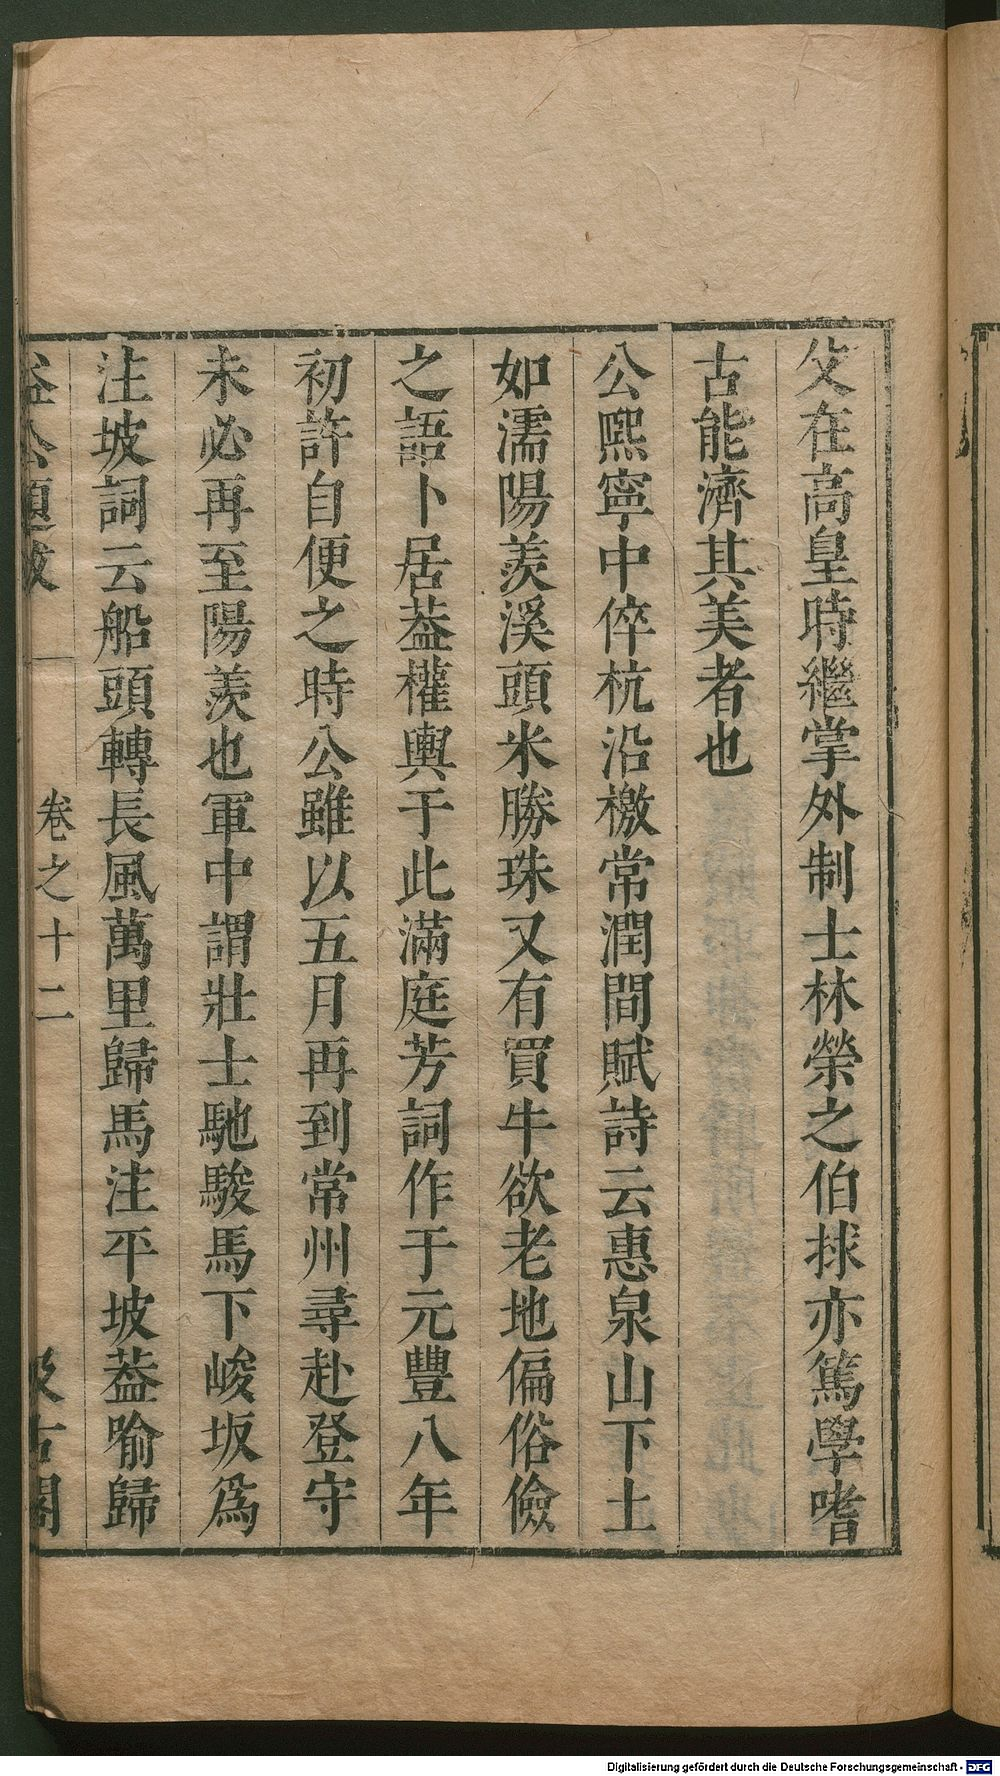 父在高皇時繼掌外制士林榮之伯捄亦篤學嗜
古能濟其美者也
公熈寧中倅杭沿檄常潤間賦詩云惠泉山下土
如濡陽羨溪頭米勝珠又有買牛欲老地偏俗儉
之語卜居葢權輿于此滿庭芳詞作于元豐八年
初許自便之時公雖以五月再到常州尋赴登守
未必再至陽羨也軍中謂壯士馳駿馬下峻坂爲
注坡詞云船頭轉長風萬里歸馬注平坡葢喻歸
益公題跋 卷之十二 汲古閣
Digitalisierung gefördert durch die Deutsche Forschungsgemeinschaft - DFG